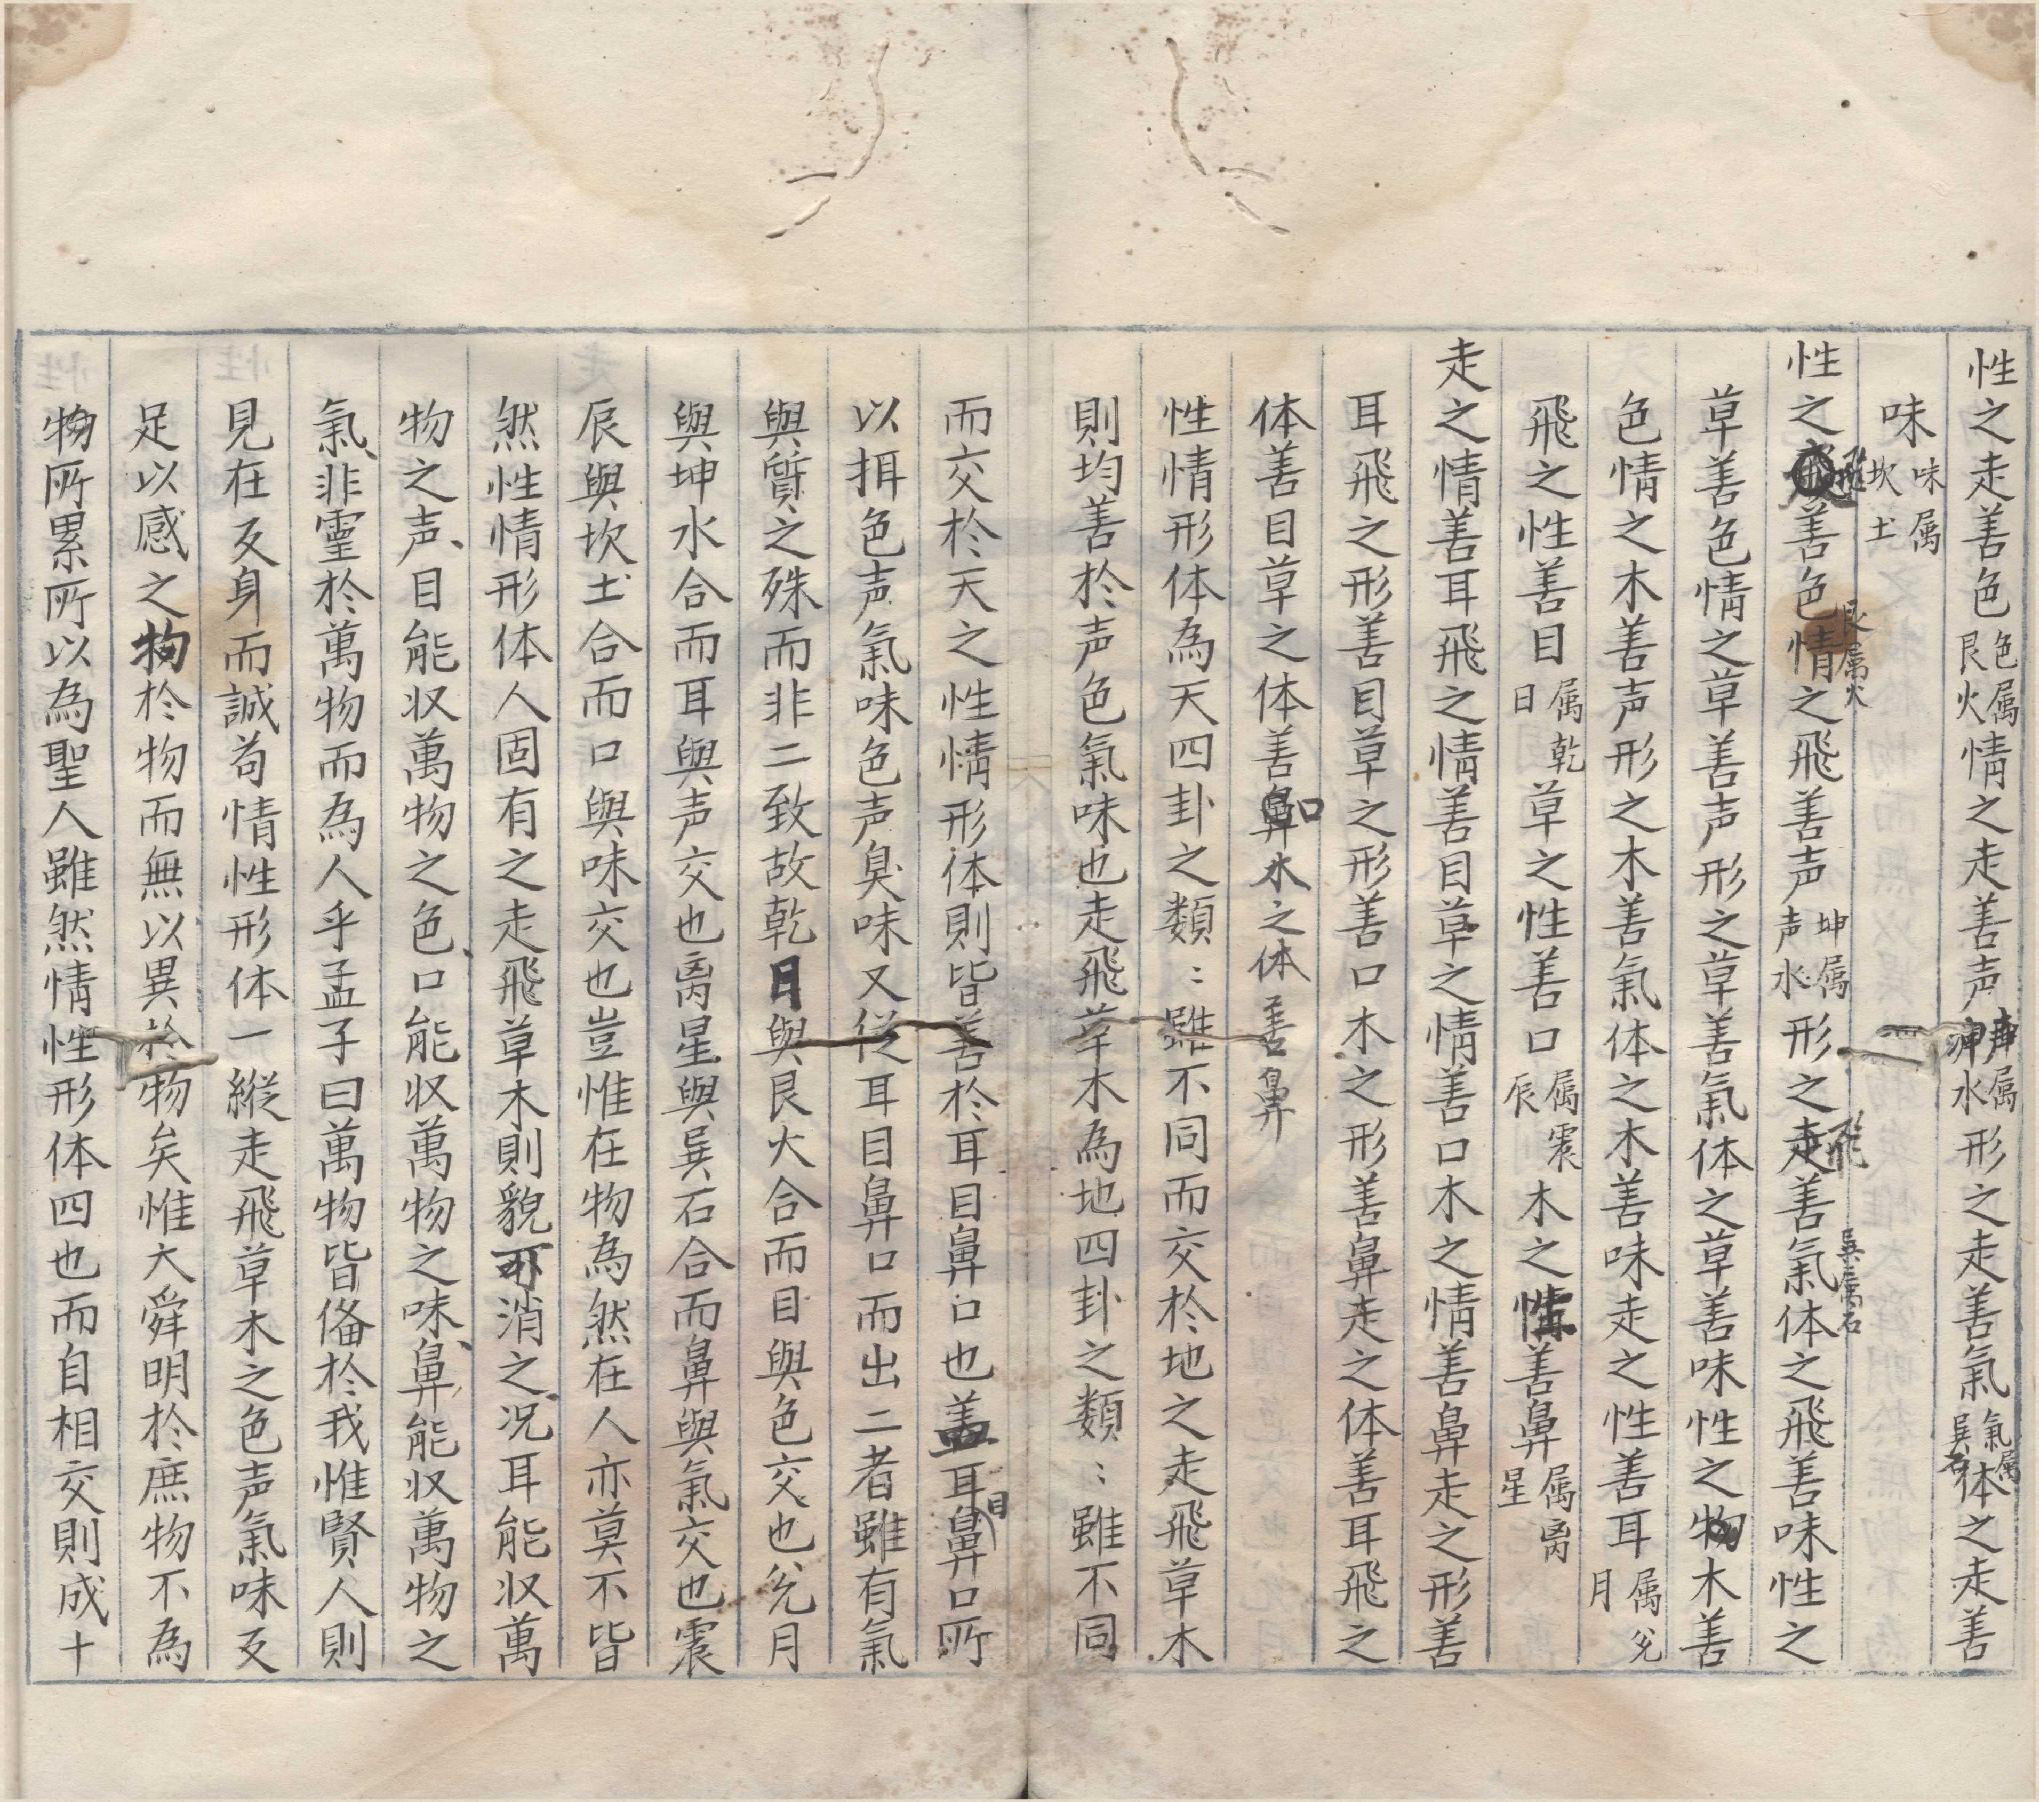 性之走善色色属艮火情之走善声声属坤水形之走善氣氣属巽石体之走善
味味属坎土
性之飛善色艮属火情之飛善声坤属声水形之飛善氣巽属石体之飛善味性之
草善色情之草善声形之草善氣体之草善味性之物木善
色情之木善声形之木善氣体之木善味走之性善耳属兌月
飛之性善目属乾日草之性善口属震辰木之性善鼻属离星
走之情善耳飛之情善目草之情善口木之情善鼻走之形善
耳飛之形善目草之形善口木之形善鼻走之体善耳飛之
体善目草之体善口木之体善鼻
性情形体為天四卦之類：雖不同而交於地之走飛草木
則均善於声色氣味也走飛草木為地四卦之類：雖不同
而交於天之性情形体則皆善於耳目鼻口也盖耳目鼻口所
以揖色声氣味色声臭味又從耳目鼻口而出二者雖有氣
與質之殊而非二致故乾日與艮火合而目與色交也兌月
與坤水合而耳與声交也离星與巽石合而鼻與氣交也震
辰與坎土合而口與味交也豈惟在物為然在人亦莫不皆
然性情形体人固有之走飛草木則貌所消之况耳能収萬
物之声、目能収萬物之色、口能収萬物之味、鼻能収萬物之
氣、非霊於萬物而為人乎孟子曰萬物皆俻於我惟賢人則
見在反身而誠苟情性形体一縱走飛草木之色声氣味反
足以感之物於物而無以異於物矣惟大舜明於庶物不為
物所累所以為聖人雖然情性形体四也而自相交則成十